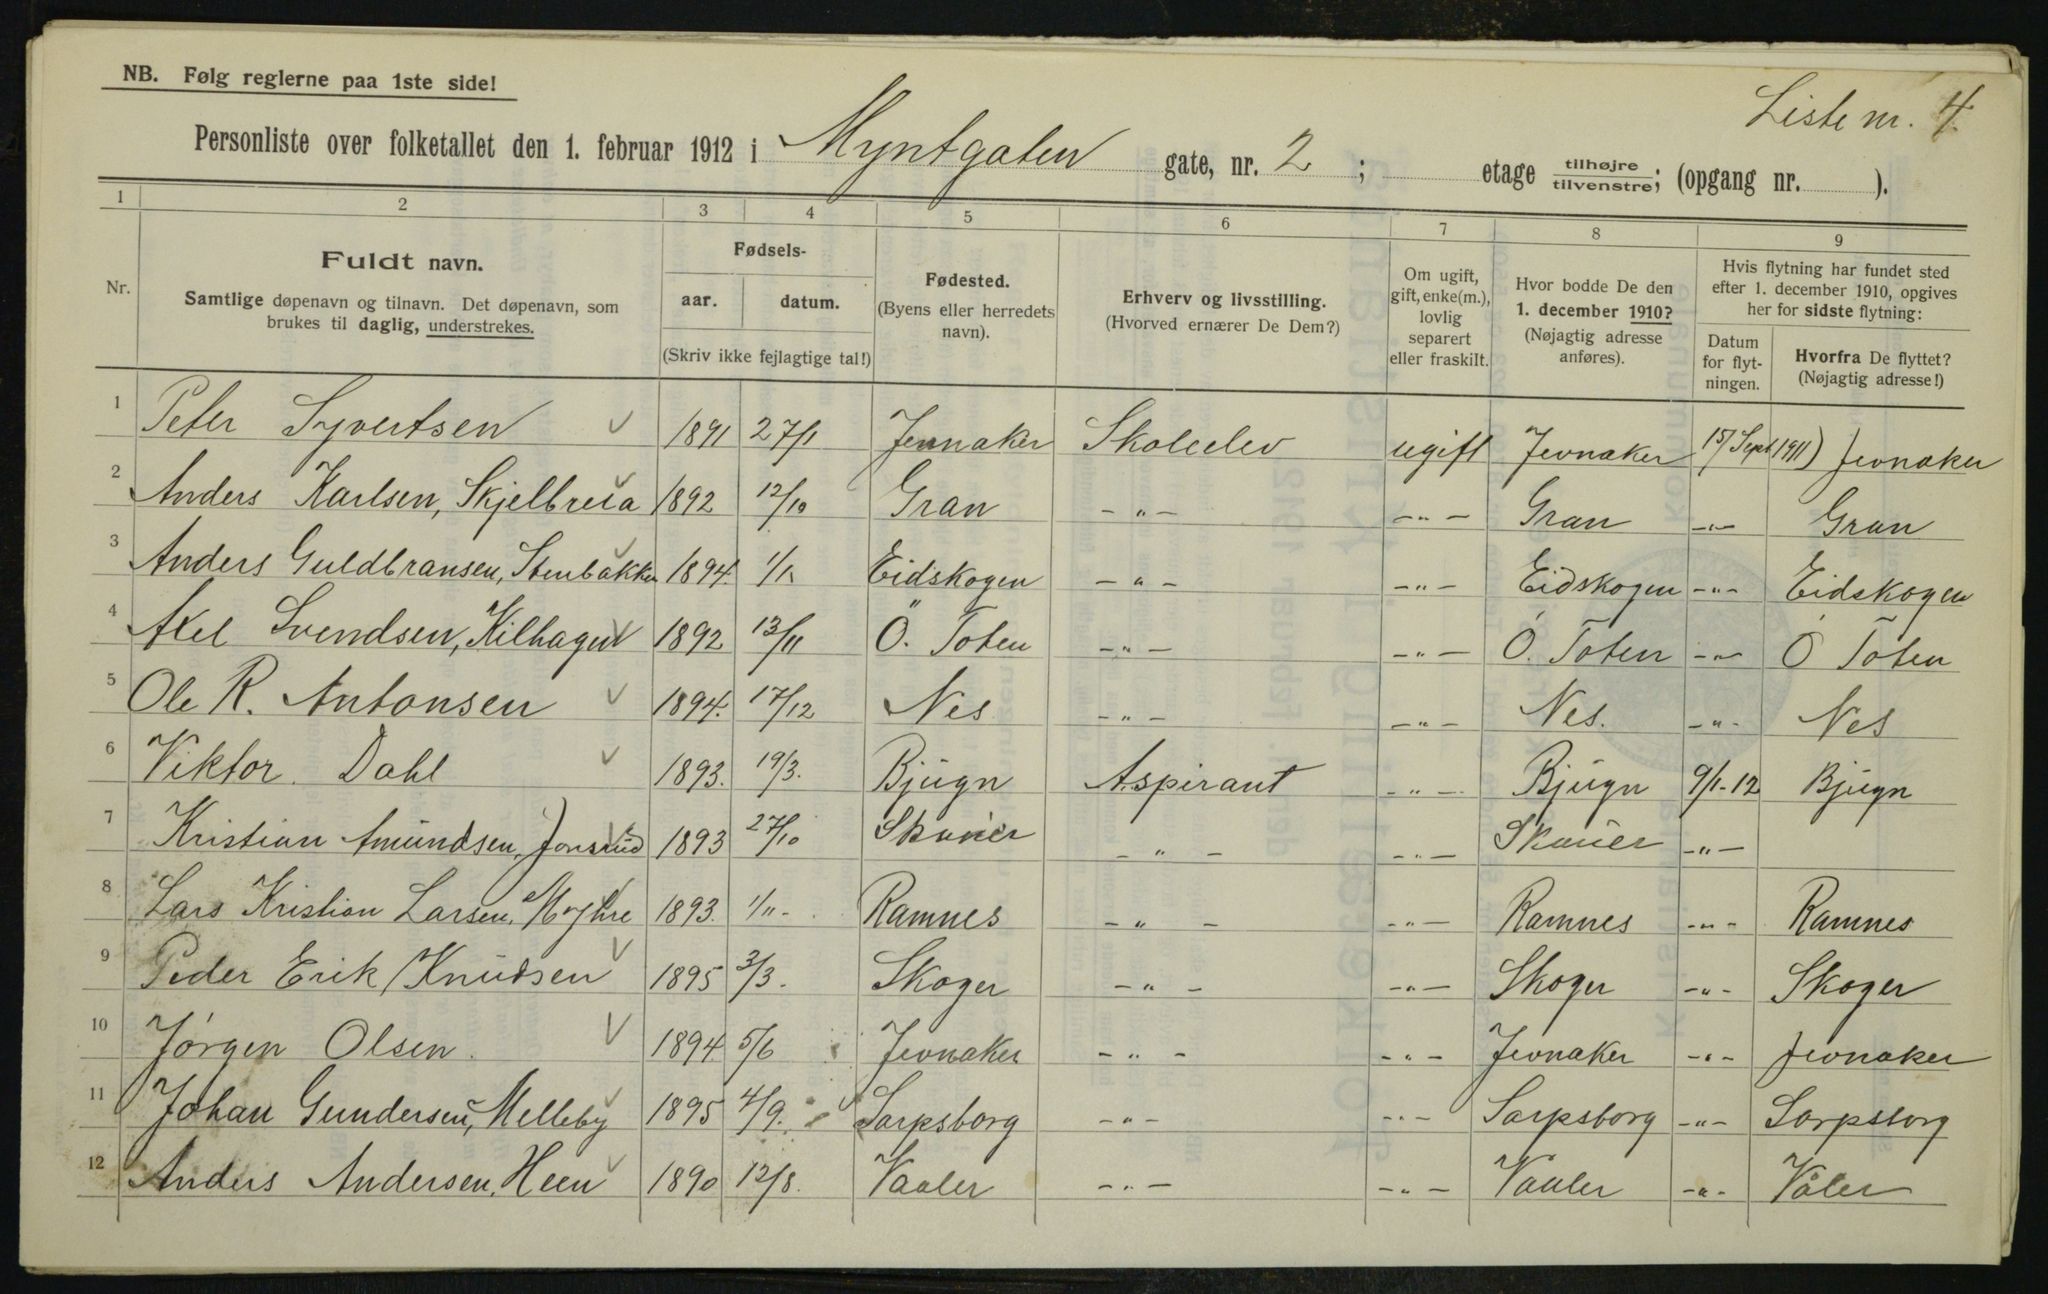 NB. Følg reglerne paa 1ste side!
Liste nr. 4
Personliste over folketallet den 1. februar 1912 i Myntgaten gate, nr. 2 ; etage tilhøjre/tilvenstre; (opgang nr. ).
1 2 3 4 5 6 7 8 9
Nr.
Fuldt navn.
Samtlige døpenavn og tilnavn. Det døpenavn, som
brukes til daglig, understrekes.
Fødsels-
aar. datum.
(Skriv ikke fejlagtige tal!)
Fødested.
(Byens eller herredets
navn).
Erhverv og livsstilling.
(Hvorved ernærer De Dem?)
Om ugift,
gift, enke(m.),
lovlig
separert
eller fraskilt.
Hvor bodde De den
1. december 1910?
(Nøjagtig adresse
anføres).
Hvis flytning har fundet sted
efter 1. december 1910, opgives
her for sidste flytning:
Datum
for flyt-
ningen.
Hvorfra De flyttet?
(Nøjagtig adresse!)
1 Peter Syvertsen 1891 27/1 Jevnaker Skoleelev ugift Jevnaker 15/Sept 1911) Jevnaker
2 Anders Karlsen, Skjelbreia 1892 12/10 Gran -"- -"- Gran -"- Gran
3 Anders Guldbransen, Stenbakken 1894. 1/1 Eidskogen -"- -"- Eidskogen -"- Eidskogen
4 Axel Svendsen, Kilhagen 1892 13/11 Ö. Toten -"- -"- Ö. Toten -"- Ö Toten
5 Ole R. Antonsen 1894. 17/12 Nes -"- -"- Nes. -"- Nes
6 Viktor. Dahl 1893. 19/3. Bjugn Aspirant -"- Bjugn 9/1-12 Bjugn
7 Kristian Amundsen, Jonsrud 1893 27/10 Skouer -"- -"- Skouer -"-
8 Lars Kristian Larsen, Myhre 1893. 1/11- Ramnes -"- -"- Ramnes -"- Ramnes
9 Peder Erik Knudsen 1895 3/3. Skoger -"- -"- Skoger -"- Skoger
10 Jørgen Olsen. 1894 5/6 Jevnaker -"- -"- Jevnaker -"- Jevnaker
11 Johan Gundersen, Melleby 1895 4/9. Sarpsborg -"- -"- Sarpsborg -"- Sarpsborg
12 Anders Andersen, Heen 1890 12/8. Vaaler -"- -"- Vaaler -"- Våler